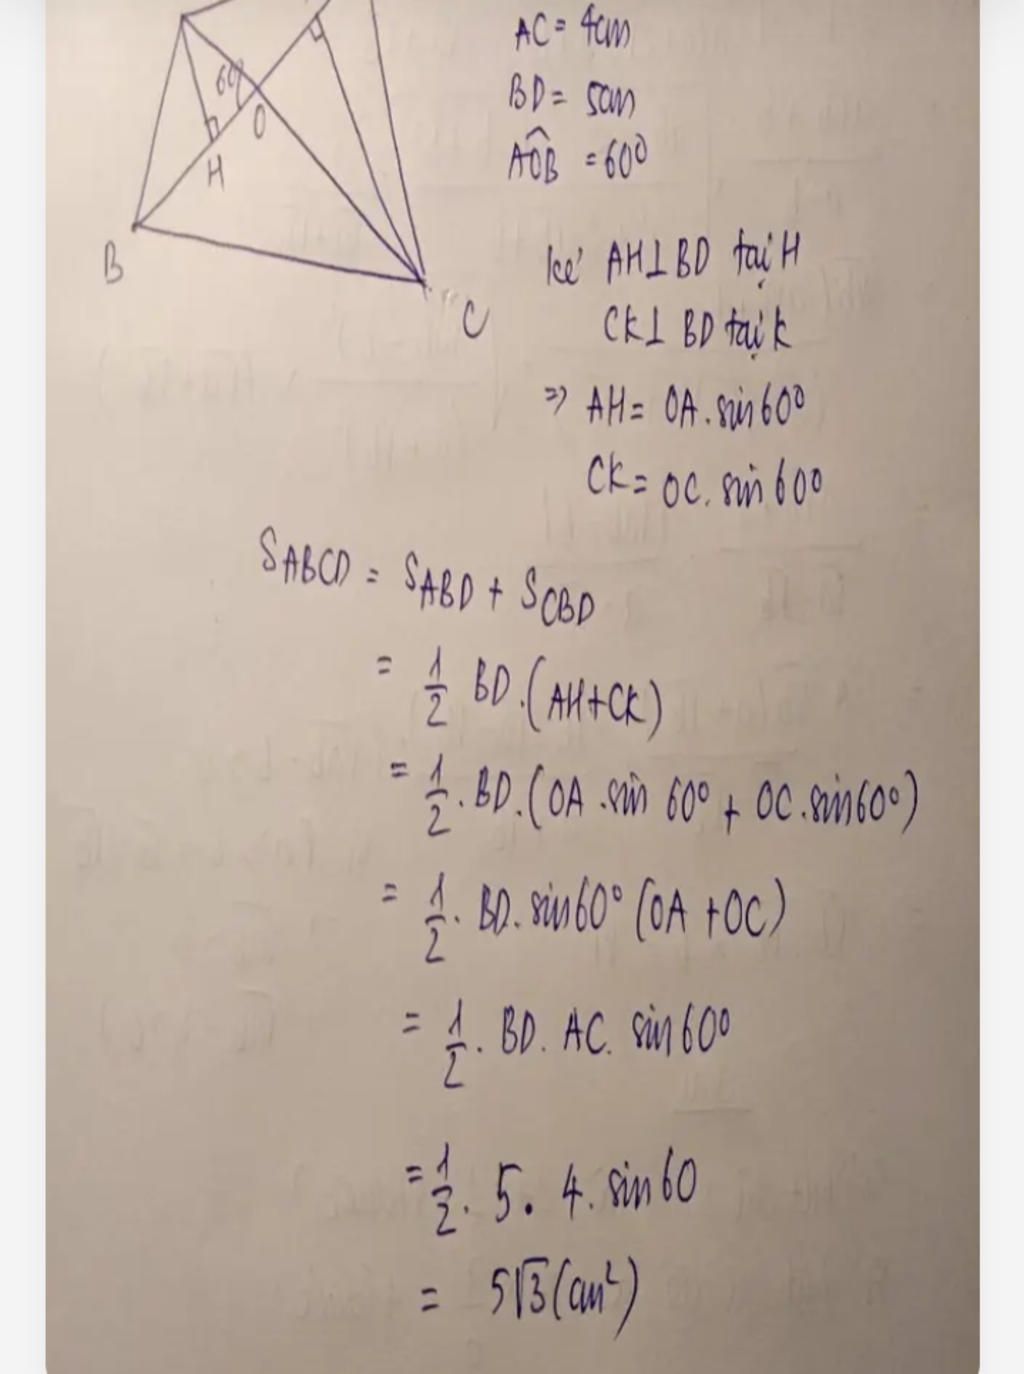 AC = 4cm
BD = 5cm
60°
AÔB = 60°
O
H
B
kẻ AH⊥BD tại H
C
CK⊥ BD tại K
=> AH = OA . sin 60°
CK = OC . sin 60°
S_ABCD = S_ABD + S_CBD
= 1/2 BD . (AH + CK)
= 1/2 . BD . (OA . sin 60° + OC . sin 60°)
= 1/2 . BD . sin 60° (OA + OC)
= 1/2 . BD . AC . sin 60°
= 1/2 . 5 . 4 . sin 60
= 5√3 (cm²)